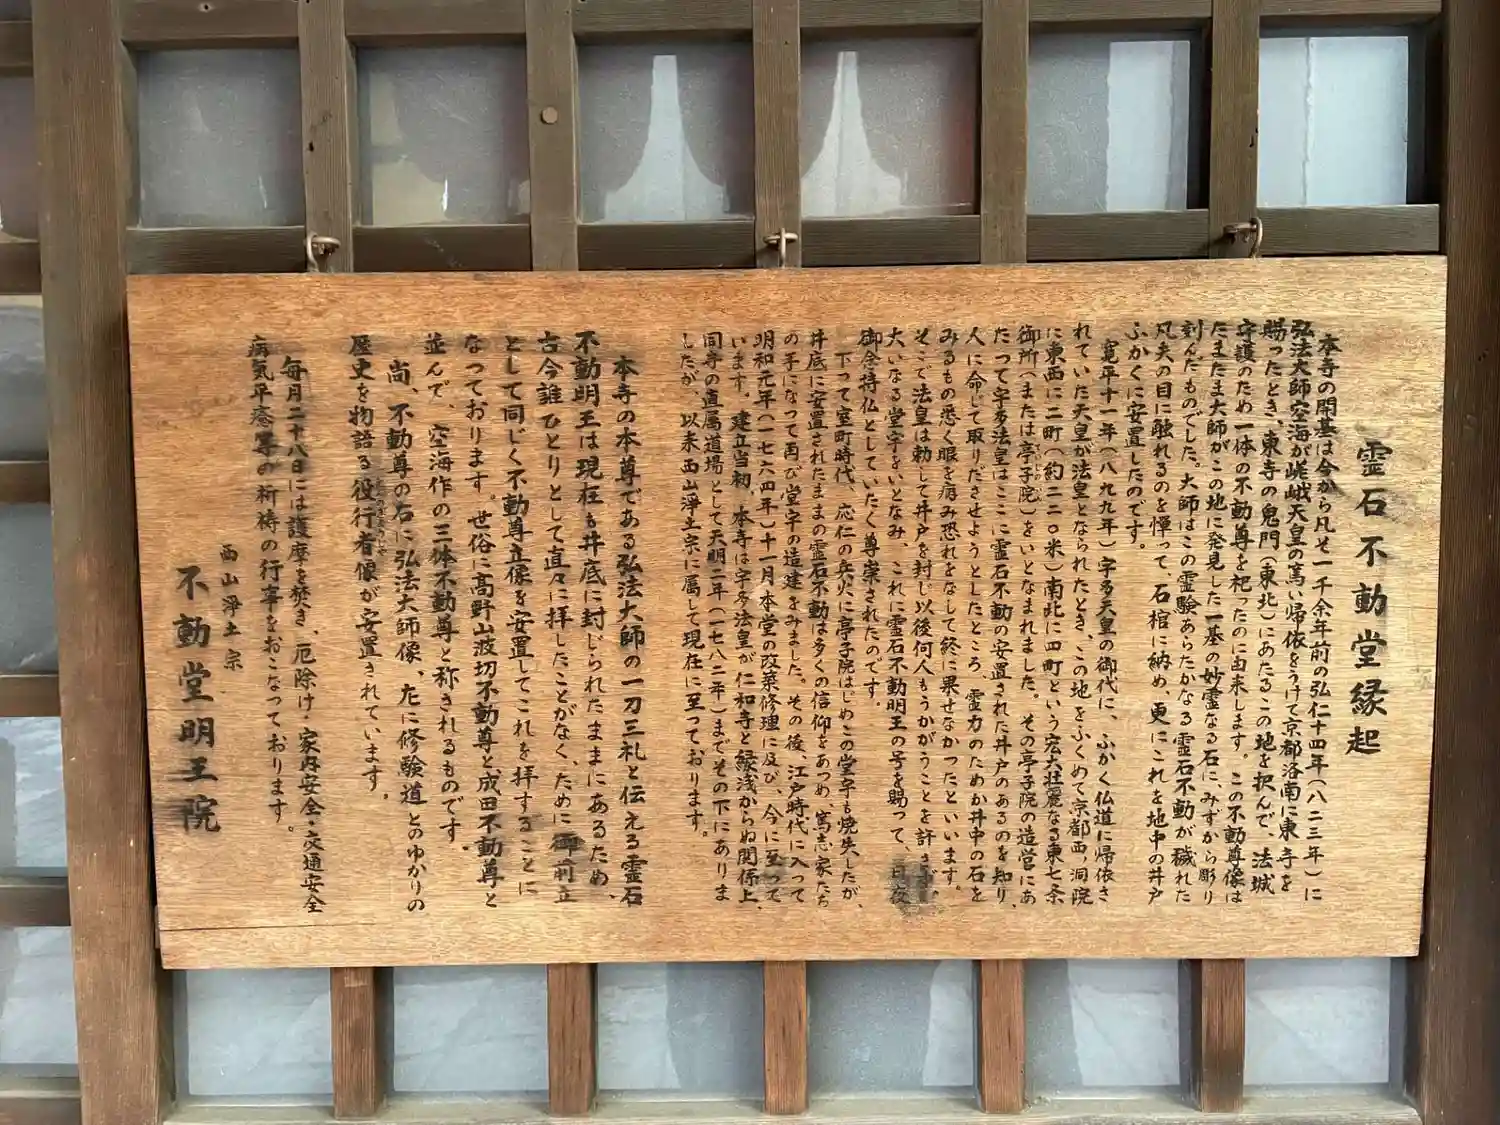 霊石不動堂縁起
本寺の開基は今から凡そ一千余年前の弘仁十四年（八二三年）に
弘法大師空海が嵯峨天皇の篤い帰依をうけて京都洛南に東寺を
賜ったとき、東寺の鬼門（東北）にあたるこの地を択んで、法城
守護のため一体の不動尊を祀ったのに由来します。この不動尊像は
たまたま大師がこの地に発見した一基の妙霊なる石に、みずから彫り
刻んだものでした。大師はこの霊験あらたかなる霊石不動が穢れた
凡夫の目に触れるのを憚って、石棺に納め、更にこれを地中の井戸
ふかくに安置したのです。
寛平十一年（八九九年）宇多天皇の御代に、ふかく仏道に帰依さ
れていた天皇が法皇となられたとき、この地をふくめて京都西ノ洞院
に東西に二町（約二二〇米）南北に四町という宏大壮麗なる東七条
御所（または亭子院）をいとなまれました。その亭子院の造営にあ
たって宇多法皇はここに霊石不動の安置された井戸のあるのを知り、
人に命じて取りださせようとしたところ、霊力のためか井中の石を
みるもの悉く眼を病み恐れをなして終に果せなかったといいます。
そこで法皇は勅して井戸を封じ以後何人もうかがうことを許さず。
大いなる堂宇をいとなみ、これに霊石不動明王の号を賜って、日夜
御念持仏としていたく尊崇されたのです。
下って室町時代、応仁の兵火に亭子院はじめこの堂宇も焼失したが、
井底に安置されたままの霊石不動は多くの信仰をあつめ、篤志家たち
の手になって再び堂宇の造建をみました。その後、江戸時代に入って
明和元年（一七六四年）十一月本堂の改築修理に及び、今に至って
います。建立当初、本寺は宇多法皇が仁和寺と縁浅からぬ関係上、
同寺の直属道場として天明二年（一七八二年）までその下にありま
したが、以来西山浄土宗に属して現在に至っております。
本寺の本尊である弘法大師の一刀三礼と伝える霊石
不動明王は現在も井底に封じられたままにあるため、
古今誰ひとりとして直々に拝したことがなく、ために御前立
として同じく不動尊立像を安置してこれを拝することに
なっております。世俗に高野山波切不動尊と成田不動尊と
並んで、空海作の三体不動尊と称されるものです。
尚、不動尊の右に弘法大師像、左に修験道とのゆかりの
歴史を物語る役行者像が安置されています。
毎月二十八日には護摩を焚き、厄除け・家内安全・交通安全
病気平癒等の祈祷の行事をおこなっております。
西山浄土宗
不動堂明王院